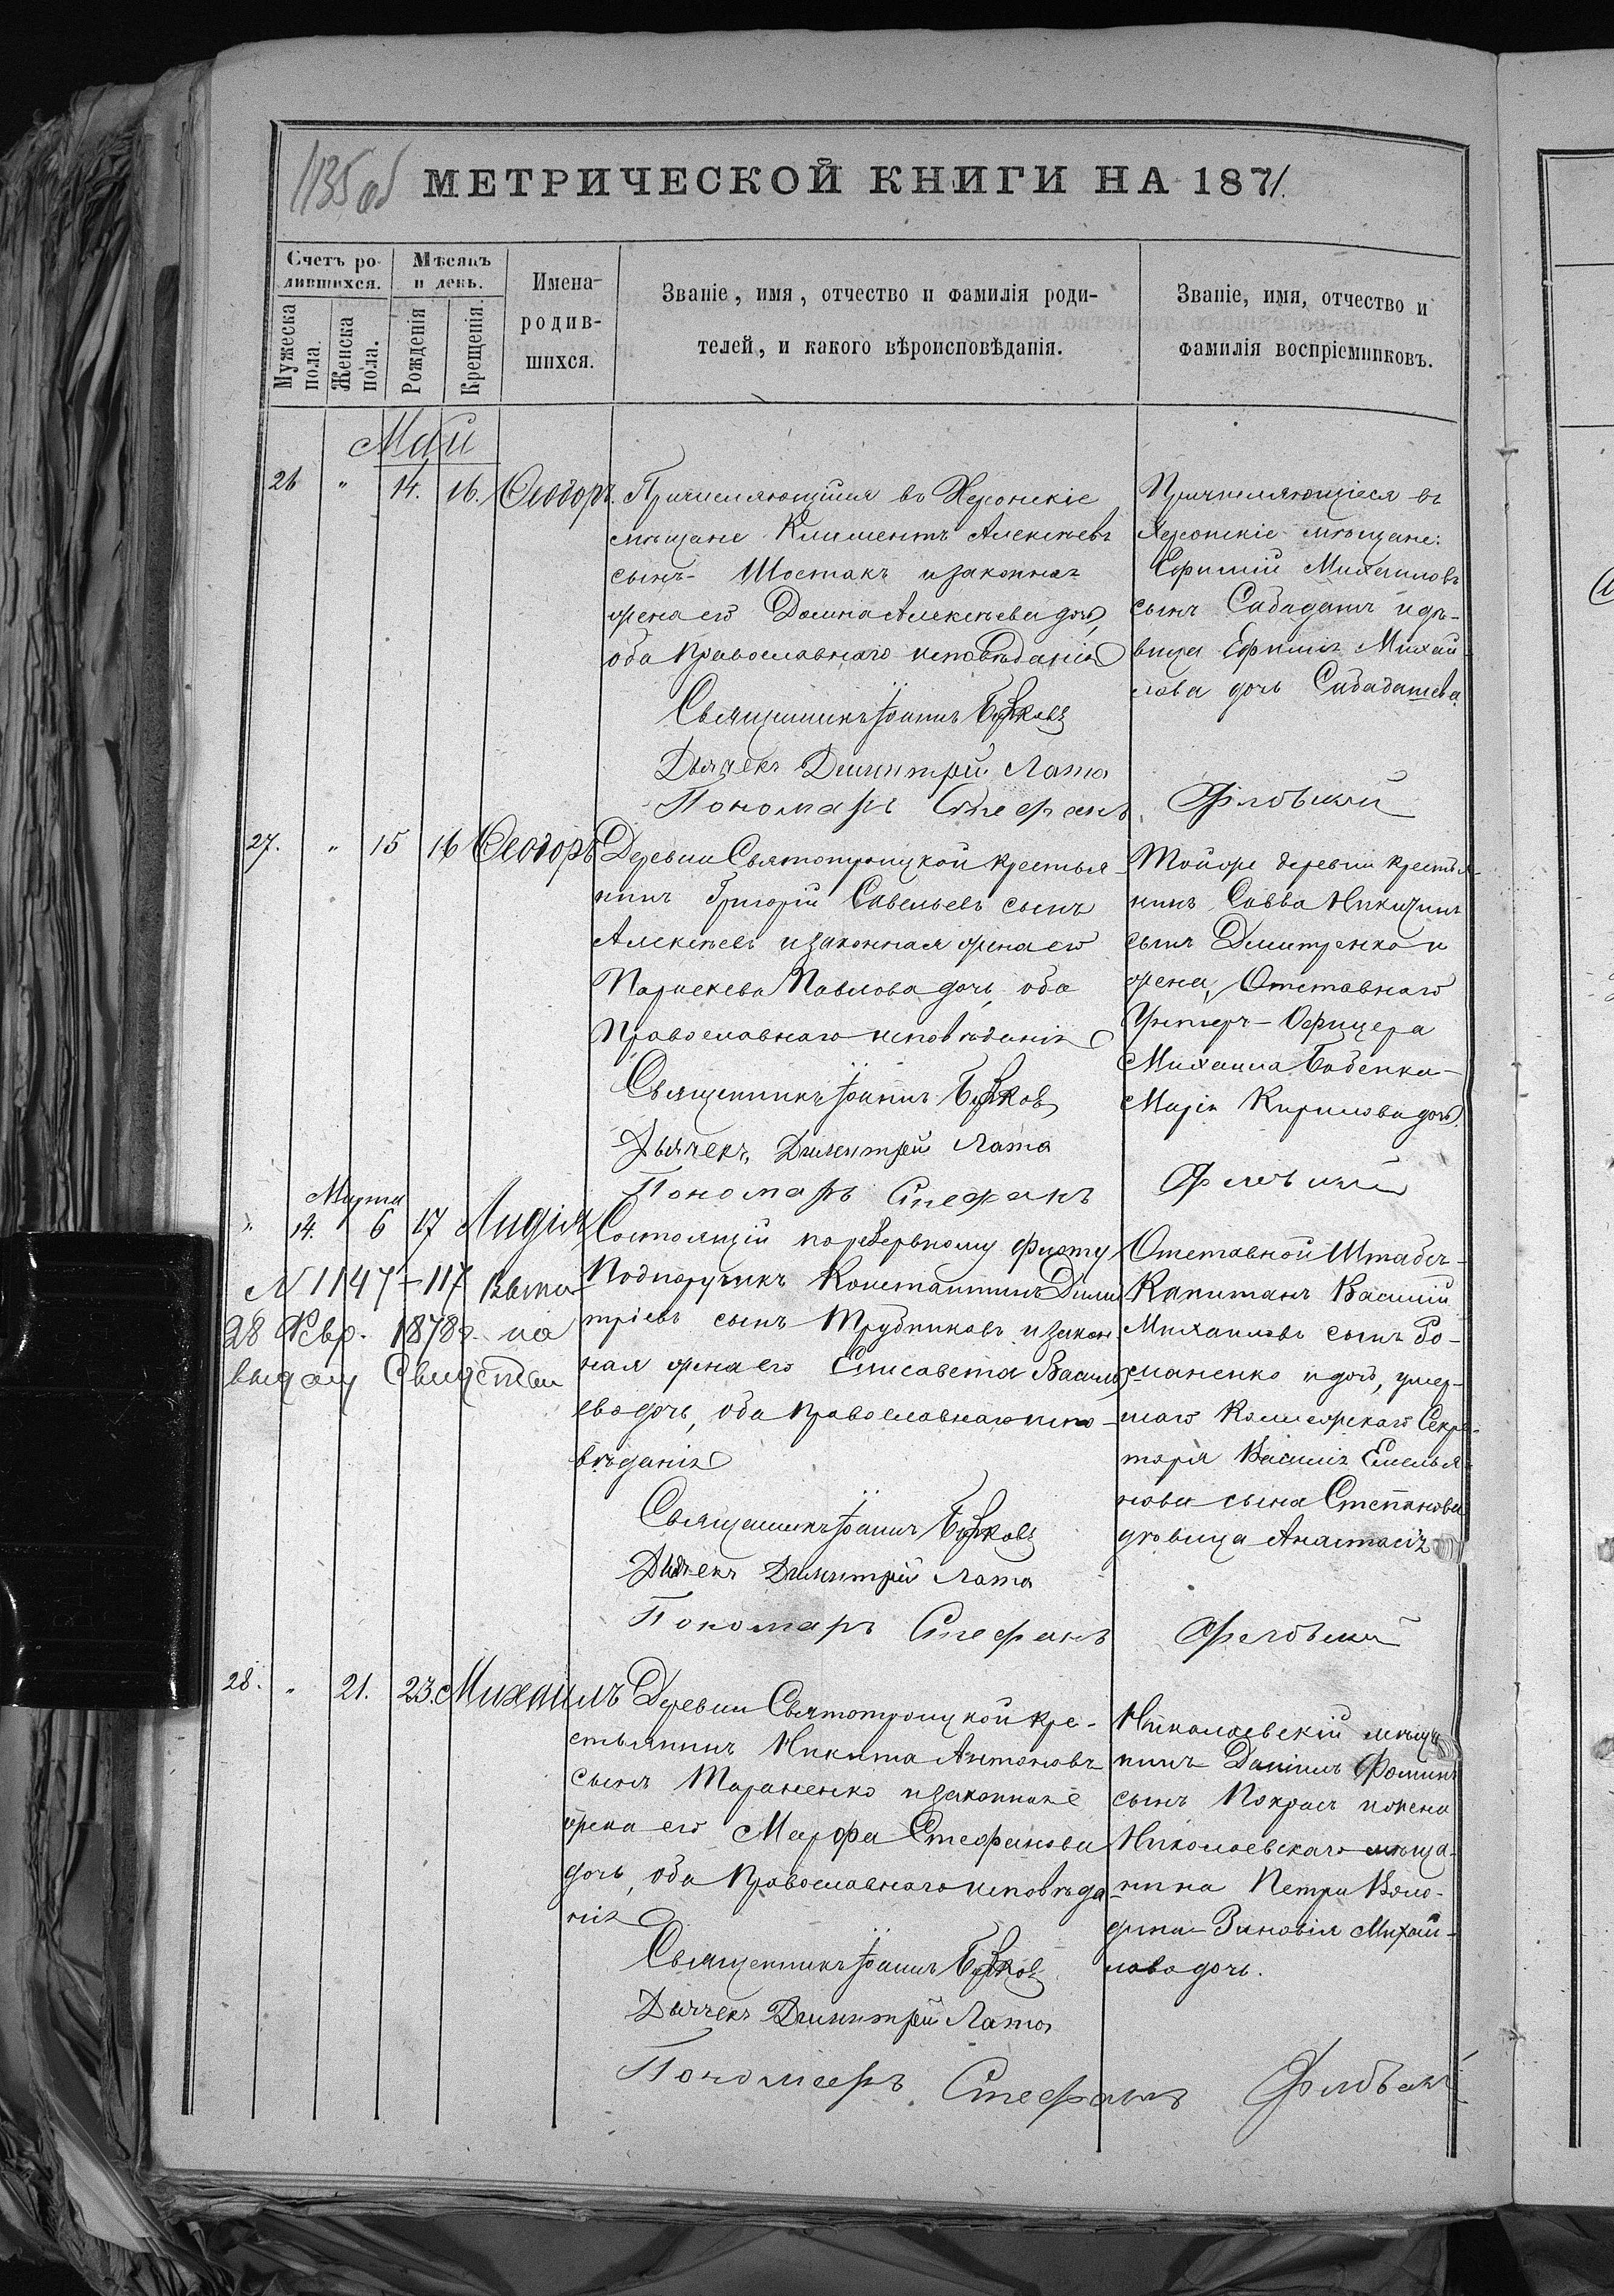 1135 об
МЕТРИЧЕСКОЙ КНИГИ НА 1871.
Счетъ ро-
дившихся.
Мужеска
пола.
Женска
пола.
Мѣсяцъ
и день.
Рожденія
Крещенія.
Имена
родив-
шихся.
Званіе, имя, отчество и фамилія роди-
телей, и какого вѣроисповѣданія.
Званіе, имя, отчество и
фамилія воспріемниковъ.
Май
26 " 14. 16. Ѳеодоръ.
Причисляющійся въ Херсонскіе
мѣщане Климентъ Алексѣевъ
сынъ Шостакъ и законная
жена его Домна Алексѣева дочь,
оба православнаго исповѣданія
Священникъ Іоаннъ
Дьячекъ Димитрій Лата
Пономарь Стефанъ
Причисляющіеся въ
Херсонскіе мѣщане:
Ефимій Михаиловъ
сынъ Сабадашъ и дѣ-
вица Ефимія Михай-
лова дочь Сабадашева
27. " 15 16 Ѳеодоръ
Деревни Святотроицкой крестья-
нинъ Григорій Савельевъ сынъ
Алексѣевъ и законная жена его
Параскева Павлова дочь, оба
Православнаго исповѣданія
Священникъ Іоаннъ
Дьячекъ Димитрій Лата
Пономарь Стефанъ
Тойже деревни крестья-
нинъ Савва Никитинъ
сынъ Дмитренко и
жена, Отставнаго
Унтеръ-Офицера
Михаила Бабенка-
Марія Кирилова дочь.
Марта
" 14. 6 17 Лидія
N 1147-117
28 Февр. 1878г. на
выдачу Свидѣт
Состоящій по резервному флоту
Подпоручикъ Константинъ Дими-
тріевъ сынъ Трубниковъ и закон-
ная жена его Елисавета Василь-
ева дочь, оба православнаго испо-
вѣданія
Священникъ Іоаннъ
Дьячекъ Димитрій Лата
Пономарь Стефанъ
Отставной Штабсъ-
Капитанъ Василій
Михаиловъ сынъ Ро-
маненко и дочь, умер-
шаго Коллежскаго Секре-
таря Василія Емелья-
нова сына Степанова
дѣвица Анастасія
28. " 21. 23. Михаилъ
Деревни Святотроицкой кре-
стьянинъ Никита Антоновъ
сынъ Тараненко и законная
жена его Марфа Стефанова
дочь, оба Православнаго исповѣда-
нія
Священникъ Іоаннъ
Дьячекъ Димитрій Лата
Пономарь Стефанъ
Николаевскій мѣща-
нинъ Даніилъ Фоминъ
сынъ Покрасъ и жена
Николаевскаго мѣща-
нина Петра Воло-
дина - Зиновія Михай-
лова дочь.